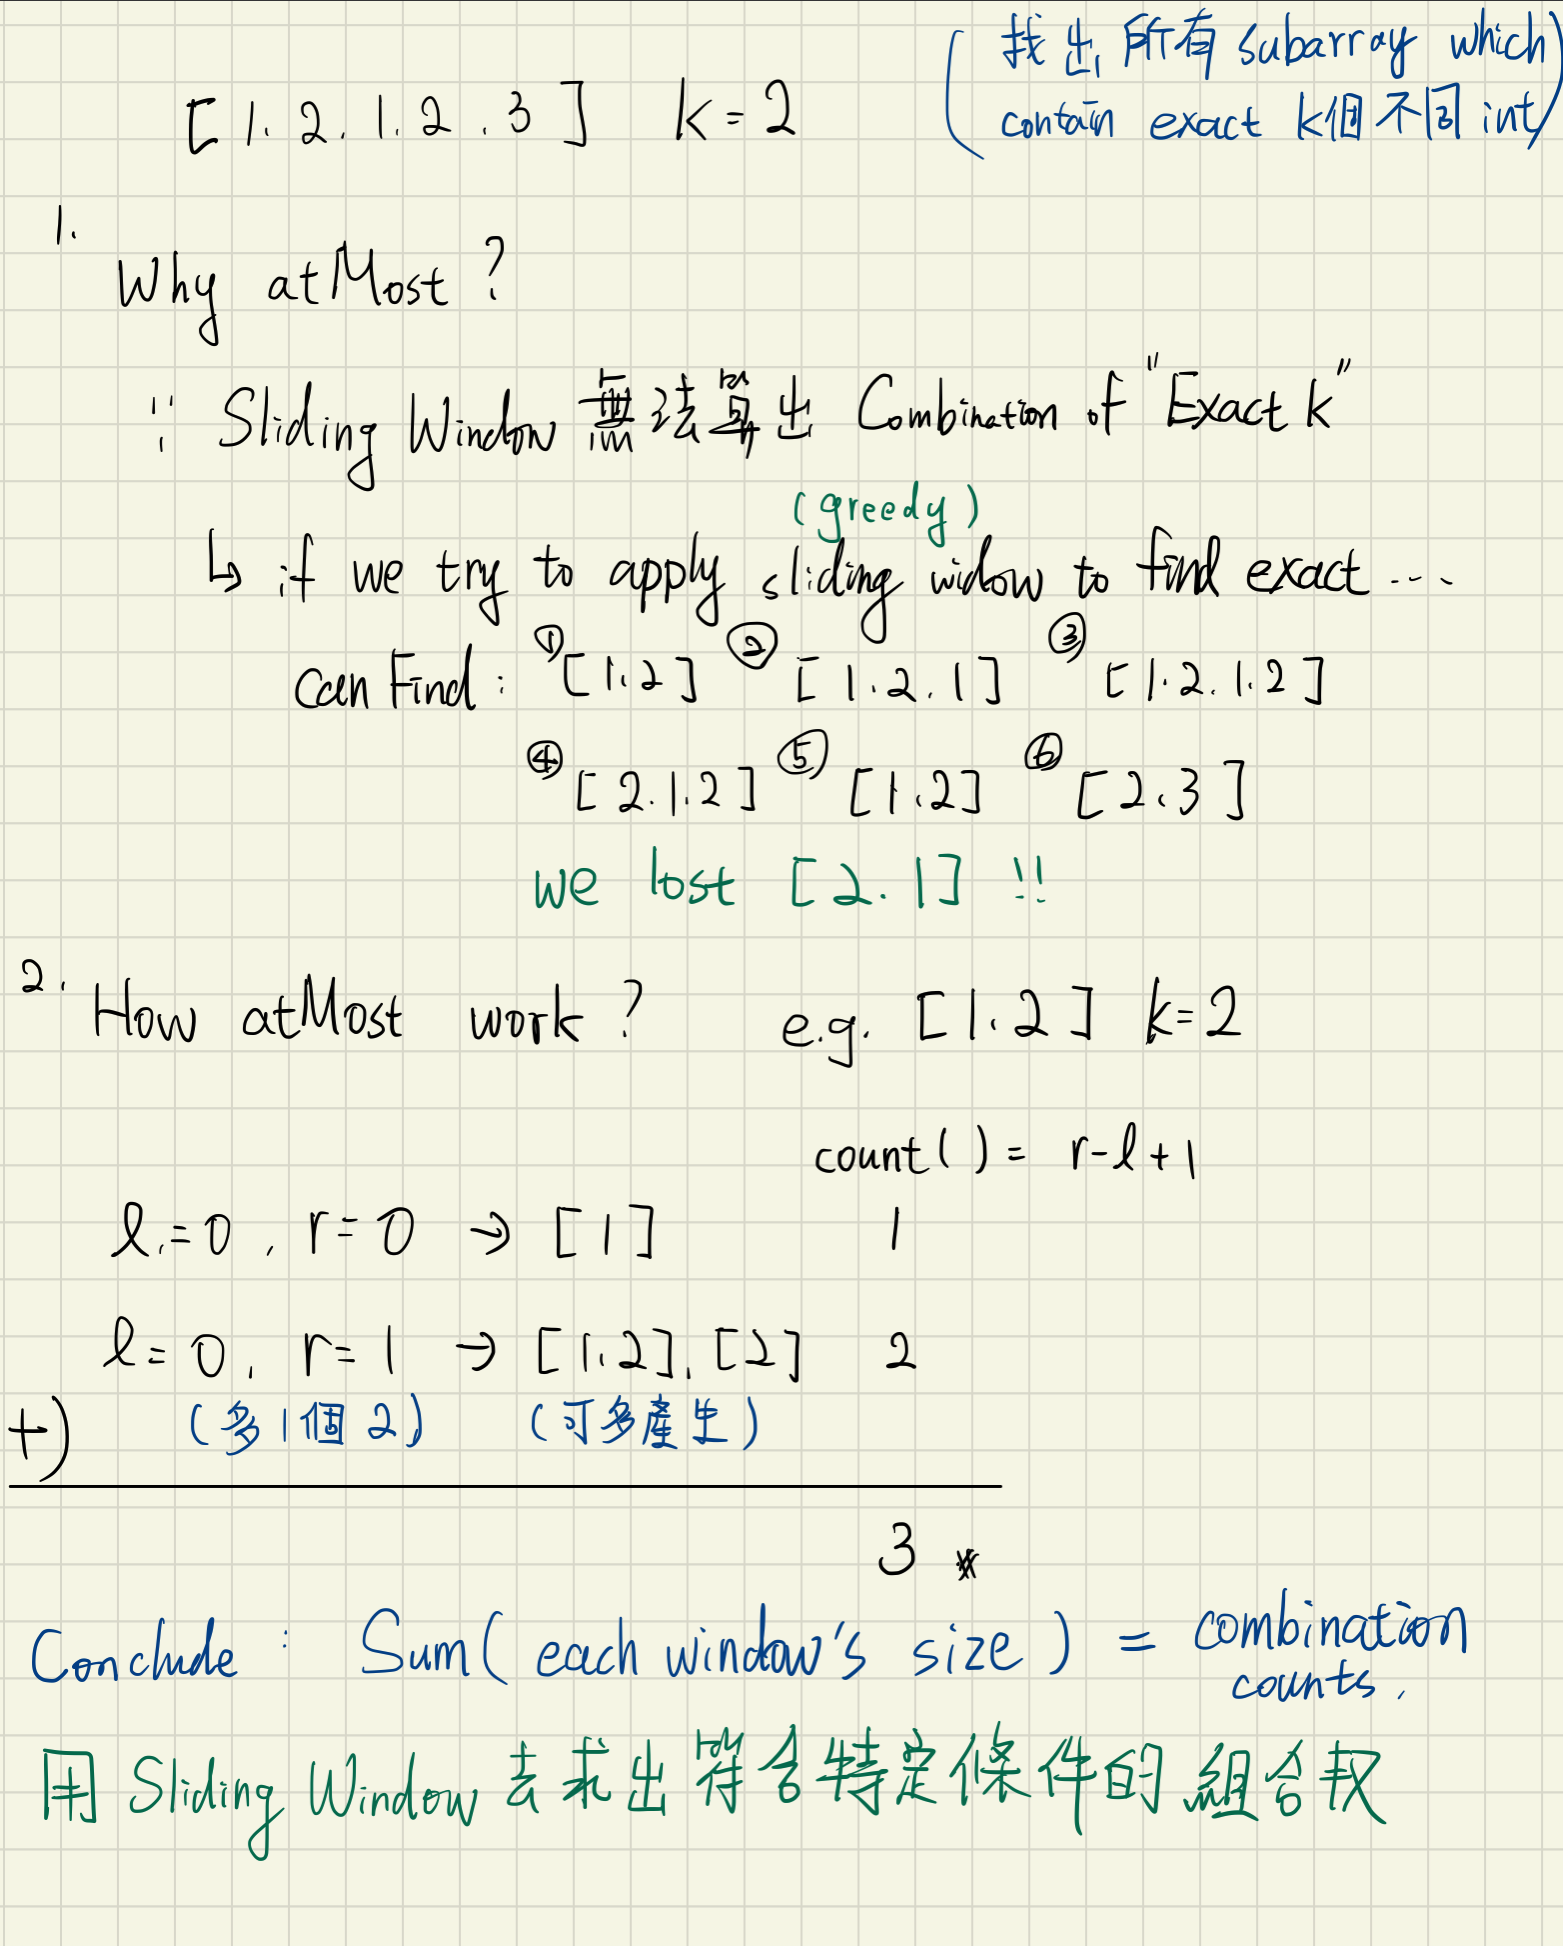 [ 1. 2. 1. 2. 3 ] k = 2
( 找出所有 subarray which
contain exact k個不同 int )
1.
Why atMost ?
∵ Sliding Window 無法算出 Combination of "Exact k"
(greedy)
↳ if we try to apply sliding widow to find exact ...
can Find : ① [1.2] ② [1.2.1] ③ [1.2.1.2]
④ [2.1.2] ⑤ [1.2] ⑥ [2.3]
we lost [2.1] !!
2. How atMost work ? e.g. [1.2] k=2
count( ) = r-l+1
l=0, r=0 → [1] 1
l=0, r=1 → [1.2], [2] 2
+) (多1個2) (可多產生)
3 ※
Conclude : Sum( each window's size ) = combination
counts.
用 Sliding Window 去求出符合特定條件的組合数